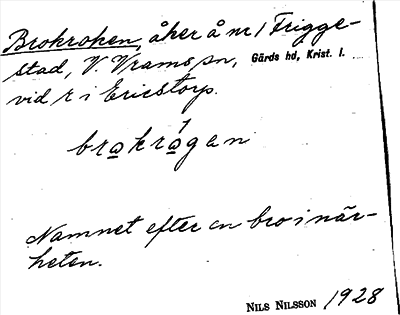 Brokroken, åker å nr 1 Frigge-
stad, V. Vrams sn, Gärds hd, Krist. l.
vid r i Ericstorp.
brokrógan
Namnet efter en bro i när-
heten.
NILS NILSSON 1928